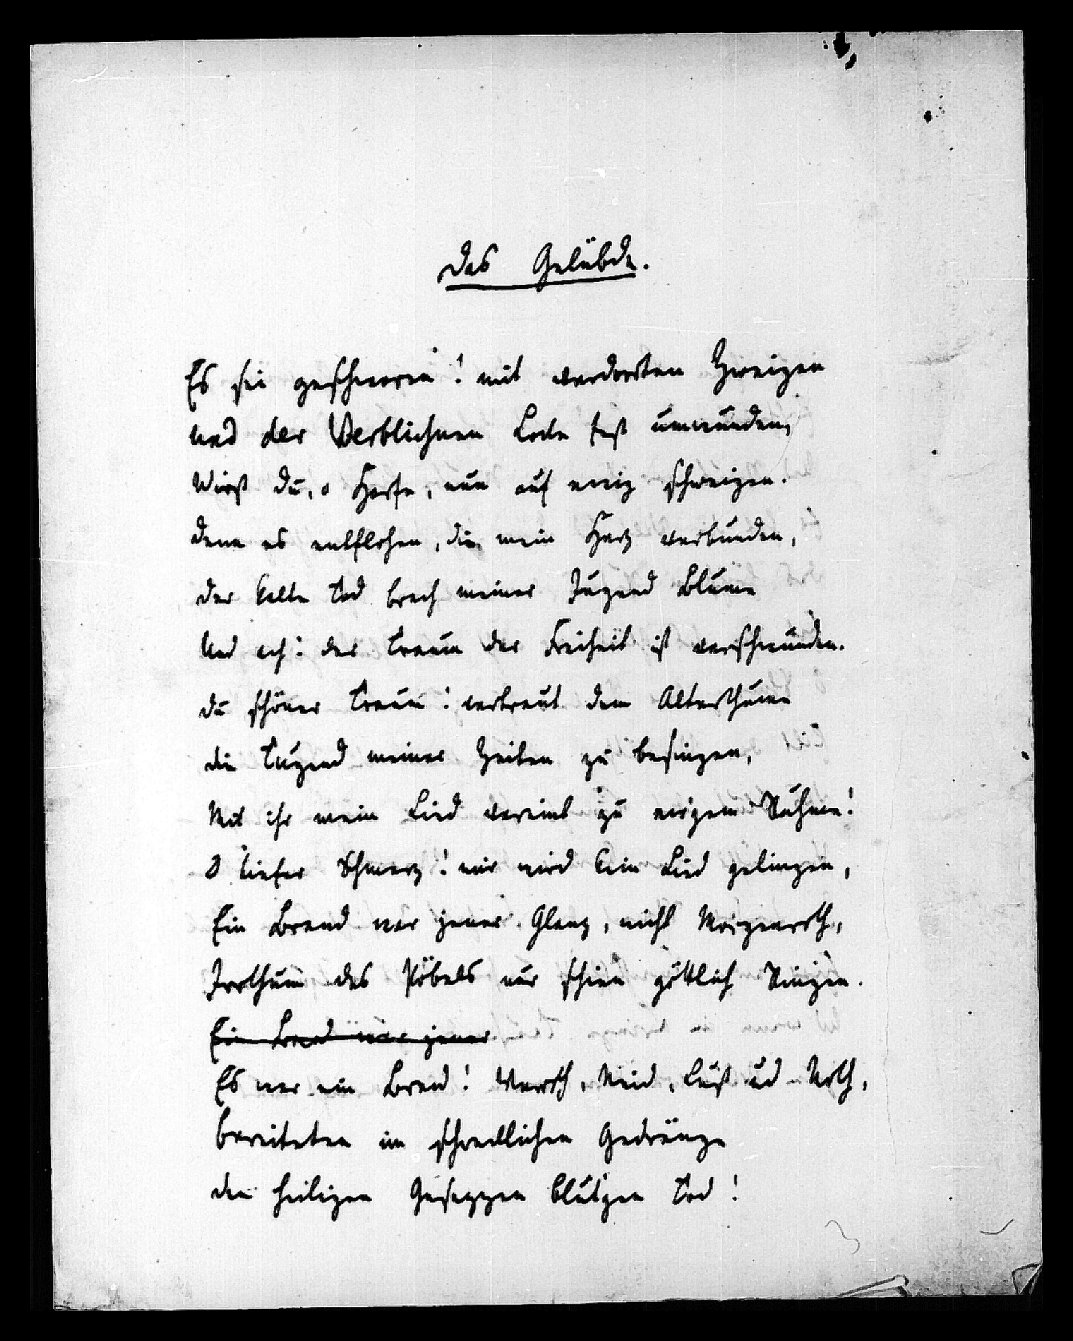 Das Gelübde.
Es sei geschworen! mit verdorrten Zweigen
Und der Verblichnen Locke fest umwunden,
Wirst du, o Harfe, nun auf ewig schweigen.
Denn es entflohen, die mein Herz verbunden,
Der kalte Tod brach meiner Jugend Blume
Und ach! der Traum der Freiheit ist verschwunden.
Du schöner Traum! vertraut dem Alterthume
Die Tugend meiner Zeiten zu besingen,
Mit ihr mein Lied vereint zu ewgem Ruhme!
O tiefer Schmerz! mir wird kein Lied gelingen,
Ein Brand war jener Glanz, nicht Morgenroth,
Irrthum des Pöbels nur schien göttlich Ringen.
Ein Brand war jener
Es war ein Brand! Wuth, Neid, Lust ud Noth,
Bereiteten im schrecklichen Gedränge
Den heiligen Gesetzen blutgen Tod!